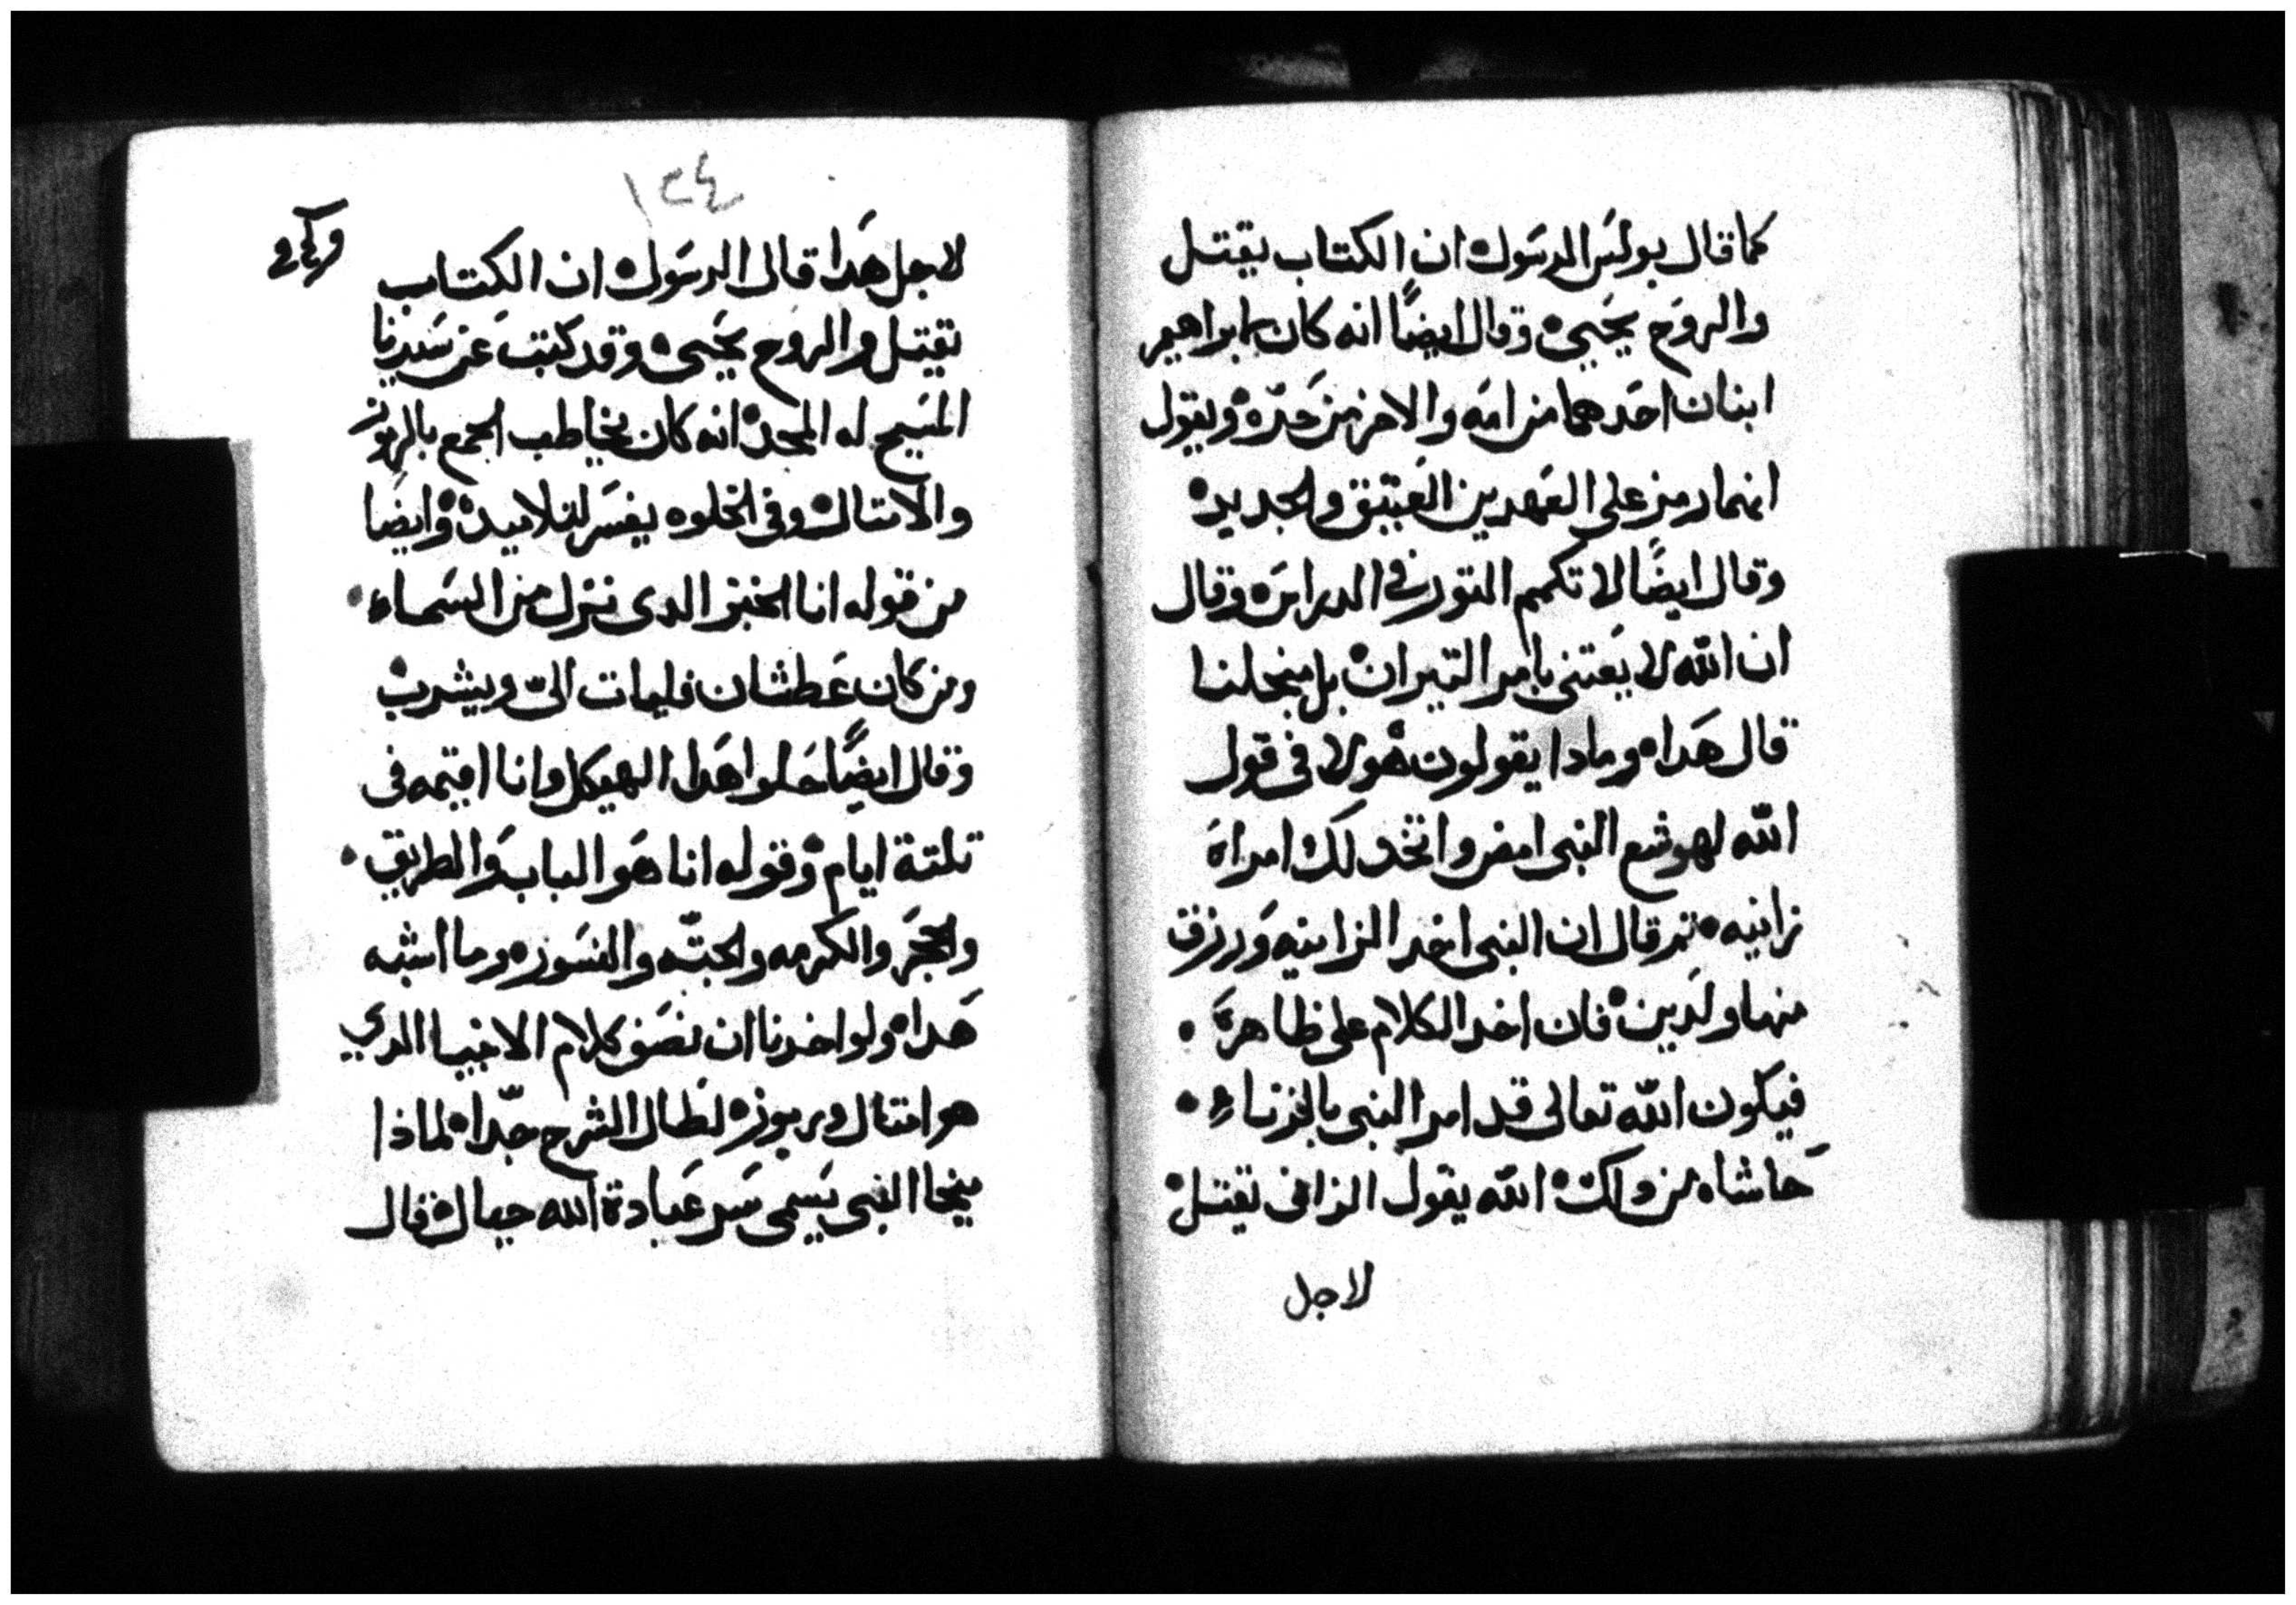 كما قال بولس الرسول ان الكتاب يقتل
والروح يحيى وقال ايضًا انه كان لابراهيم
ابنان احدهما من امه والاخر من حره ويقول
انهما رمز على العهدين العتيق والجديد
وقال ايضًا لا تكمم التور في الدراس وقال
ان الله لا يعتنى بامر التيران بل من اجلنا
قال هدا ومادا يقولون هولا في قول
الله لهوشع النبى امض واتخد لك امراة
زانيه تم قال ان النبى اخد الزانيه ورزق
منها ولدين فان اخد الكلام على ظاهره
فيكون الله تعالى قد امر النبى بالزناء
حاشاه من دلك الله يقول الزانى تقتل
لاجل
١٢٤
لاجل هدا قال الرسول ان الكتاب
تقيتل والروح يحيى وقد كتب عن سيدنا
المسيح له المجد انه كان يخاطب الجمع بالرموز
والامتال وفى الخلوه يفسر لتلاميده وايضا
من قوله انا الخبز الدى نزل من السماء
ومن كان عطشان فليات الىّ ويشرب
وقال ايضًا حلوا هدا الهيكل وانا اقيمه فى
تلتة ايام وقوله انا هو الباب والطريق
والحجر والكرمه والحبّه والنسوره وما اشبه
هدا ولو اخدنا ان نصف كلام الانبيا الدي
هو امتال ورموز لطال الشرح جدا لماذا
ميخا النبى يسمى سر عبادة الله جبال قال